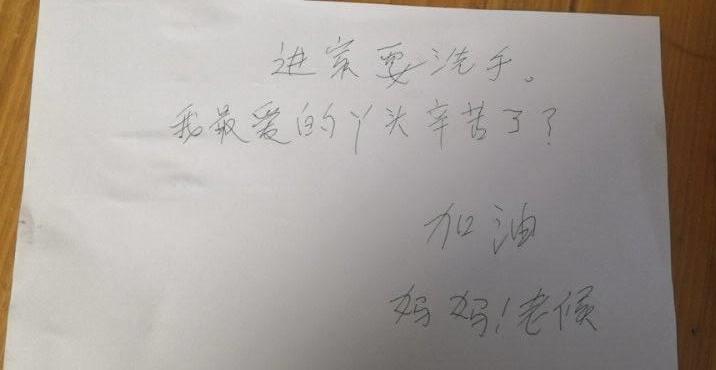 进家要洗手。
我最爱的丫头辛苦了?
加油
妈妈!老侯